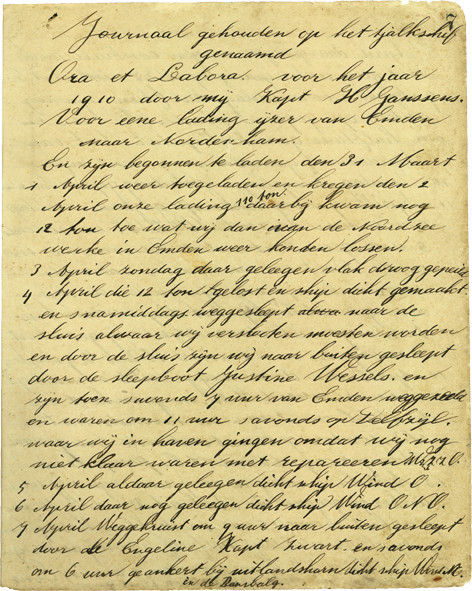 7
Journaal gehouden op het tjalkschip
genaamd
Ora et Labora. voor het jaar
1910 door mij Kapt H Ganssens.
Voor eene lading ijzer van Emden
naar Nordenham.
En zijn begonnen te laden den 31 Maart
1 April weer toegeladen en kregen den 2
April onze lading 110 ton daarbij kwam nog
12 ton toe wat wij dan in de Noordzee
werke in Emden weer konden lossen.
3 April zondag daar geleegen vlak droog
4 April die 12 ton gelost en ship dicht gemaakt
en snamiddags weggesleept naar de
sluis alwaar wij verstoken moesten worden
en door de sluis zijn wij naar buiten gesleept
door de sleepboot Justine Wessels. en
zijn toen savonds 7 uur van Emden weggezeild
en waren om 11 uur savonds op Delfzijl.
waar wij in haven gingen omdat wij nog
niet klaar waren met repareeren
5 April aldaar geleegen dicht ship Wind O.
6 April daar nog geleegen dicht ship Wind O.N.O.
7 April Weggekruist om 9 uur naar buiten gesleept
door de Engeline Kapt Zwart. en savonds
om 6 uur geankert bij uitlandshurn dicht ship Wind
in de Dansbalg.